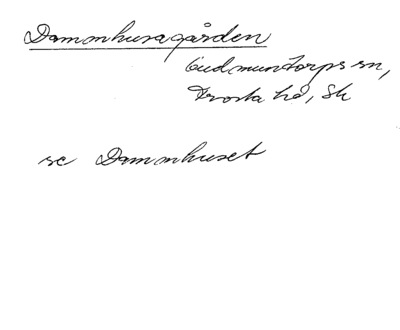 Dammhusagården
Gudmuntorps sn,
Frosta hd, Sk
se Dammhuset